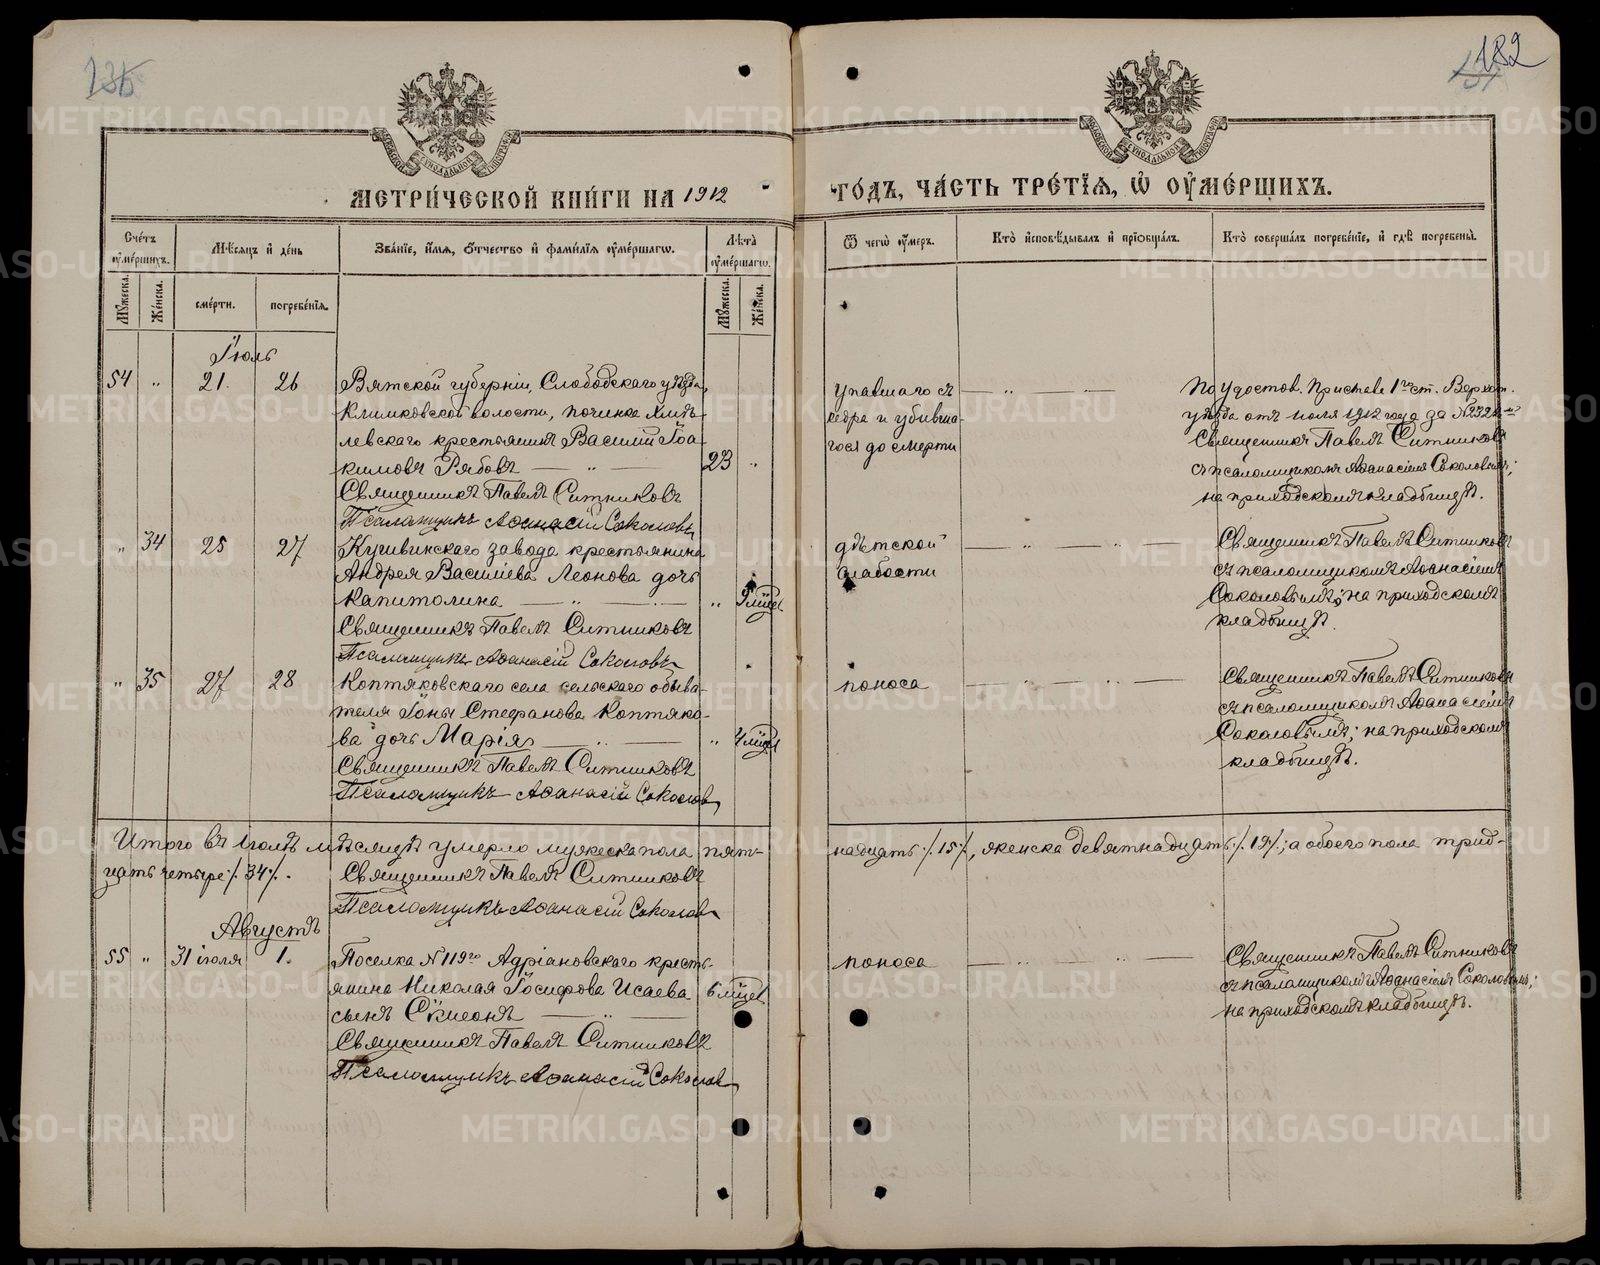 182
МЕТРИ́ЧЕСКОЙ КНИ́ГИ НА 1912
ГО́ДЪ, ЧА́СТЬ ТРЕ́ТІѦ, Ѽ ОУ҆МЕ́РШИХЪ.
Сче́тъ оу҆ме́ршихъ.
Мѣ́сяцъ и҆ де́нь
Зва́нїе, и҆́мѧ, ѻ҆́тчество и҆ фами́лїѧ оу҆ме́ршагѡ.
Лѣта̀ оу҆ме́ршагѡ.
Ѿ чегѡ̀ оу҆́меръ.
Кто̀ и҆сповѣ́дывалъ и҆ прїѡбща́лъ.
Кто̀ соверша́лъ погребе́нїе, и҆ гдѣ̀ погребены̀.
Мꙋ́жеска.
Же́нска.
сме́рти.
погребе́нїѧ.
Мꙋ́жеска.
Же́нска.
Іюль
54 „ 21. 26
Вятской губерніи, Слободского уѣзда,
Климковской волости, починка
левскаго крестьянинъ Василій Іоа-
кимовъ Рябовъ — „ — 23 „
Священникъ Павелъ Ситниковъ
Псаломщикъ Аѳанасій Соколовъ
упавшаго съ
кедра и убивша-
гося до смерти
— „ —
По удостов. Пристава 1го ст. Верхот.
уѣзда отъ июля 1912 года за №
Священникъ Павелъ Ситниковъ
съ псаломщикомъ Аѳанасіемъ Соколовымъ;
на приходскомъ кладбищѣ.
„ 34 25 27
Кушвинскаго завода крестьянина
Андрея Васильева Леонова дочь
Капитолина — „ — „ 9 мѣсц
Священникъ Павелъ Ситниковъ
Псаломщикъ Аѳанасій Соколовъ
дѣтской
слабости
— „ — „ —
Священникъ Павелъ Ситниковъ
съ псаломщикомъ Аѳанасіемъ
Соколовымъ; на приходскомъ
кладбищѣ.
„ 35 27 28
Коптяковскаго села сельскаго обыва-
теля Іоны Стефанова Коптяко-
ва дочь Марія — „ — „ 4 мѣсц
Священникъ Павелъ Ситниковъ
Псаломщикъ Аѳанасій Соколовъ
поноса
— „ — „ —
Священникъ Павелъ Ситниковъ
съ псаломщикомъ Аѳанасіемъ
Соколовымъ; на приходскомъ
кладбищѣ.
Итого въ Іюлѣ мѣсяцѣ умерло мужеска пола пят-
надцать /.15/., женска девятнадцать /.19/.; а обоего пола трид-
цать четыре /.34/..
Священникъ Павелъ Ситниковъ
Псаломщикъ Аѳанасій Соколовъ
Августъ
55 „ 31 іюля 1.
Поселка №119го Адріановскаго кресть-
янина Николая Іосифова Исаева 6 мѣсц
сынъ Сѵмеонъ — „ —
Священникъ Павелъ Ситниковъ
Псаломщикъ Аѳанасій Соколовъ
поноса
— „ — „ —
Священникъ Павелъ Ситниковъ
съ псаломщикомъ Аѳанасіемъ Соколовымъ;
на приходскомъ кладбищѣ.
METRIKI.GASO-URAL.RU